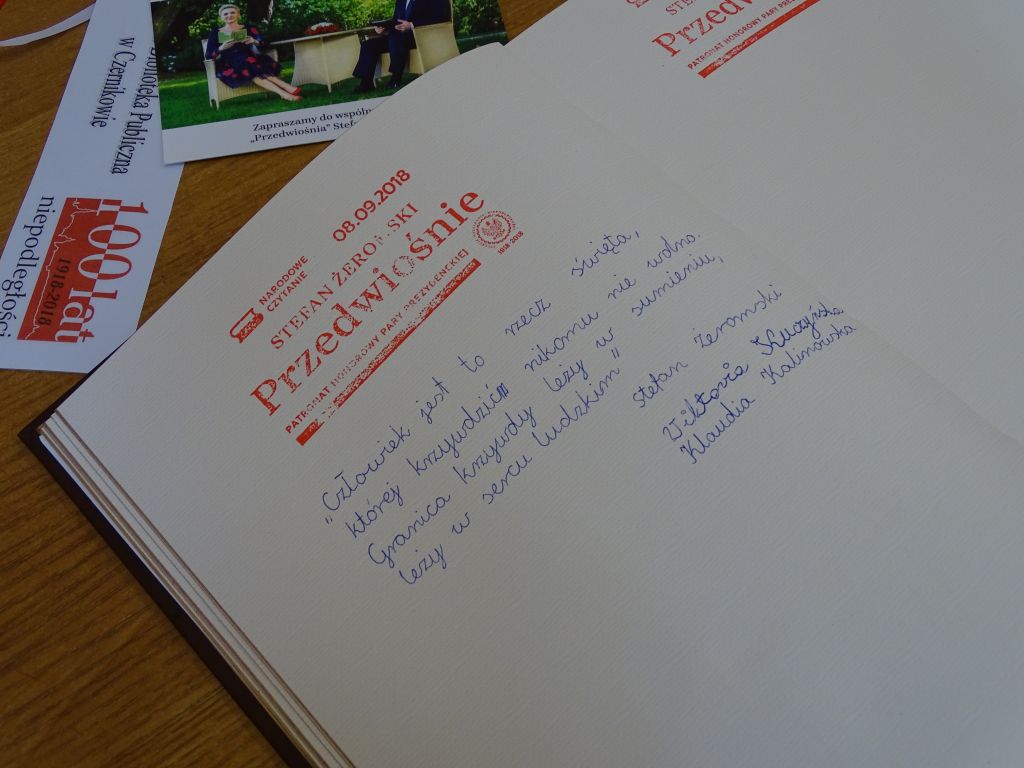 Biblioteka Publiczna
w Czernikowie
100 lat
1918-2018
niepodległości
Zapraszamy do wspóln
„Przedwiośnia" Stef
08.09.2018
NARODOWE
CZYTANIE
STEFAN ŻEROMSKI
Przedwiośnie
PATRONAT HONOROWY PARY PREZYDENCKIEJ
1918-2018
"Człowiek jest to rzecz święta,
której krzywdzić nikomu nie wolno.
Granica krzywdy leży w sumieniu,
leży w sercu ludzkim"
Stefan Żeromski
Wiktoria Kuczyńska
Klaudia Kalinowska
STEFAN
Przedwio
PATRONAT HONOROWY PARY PREZ